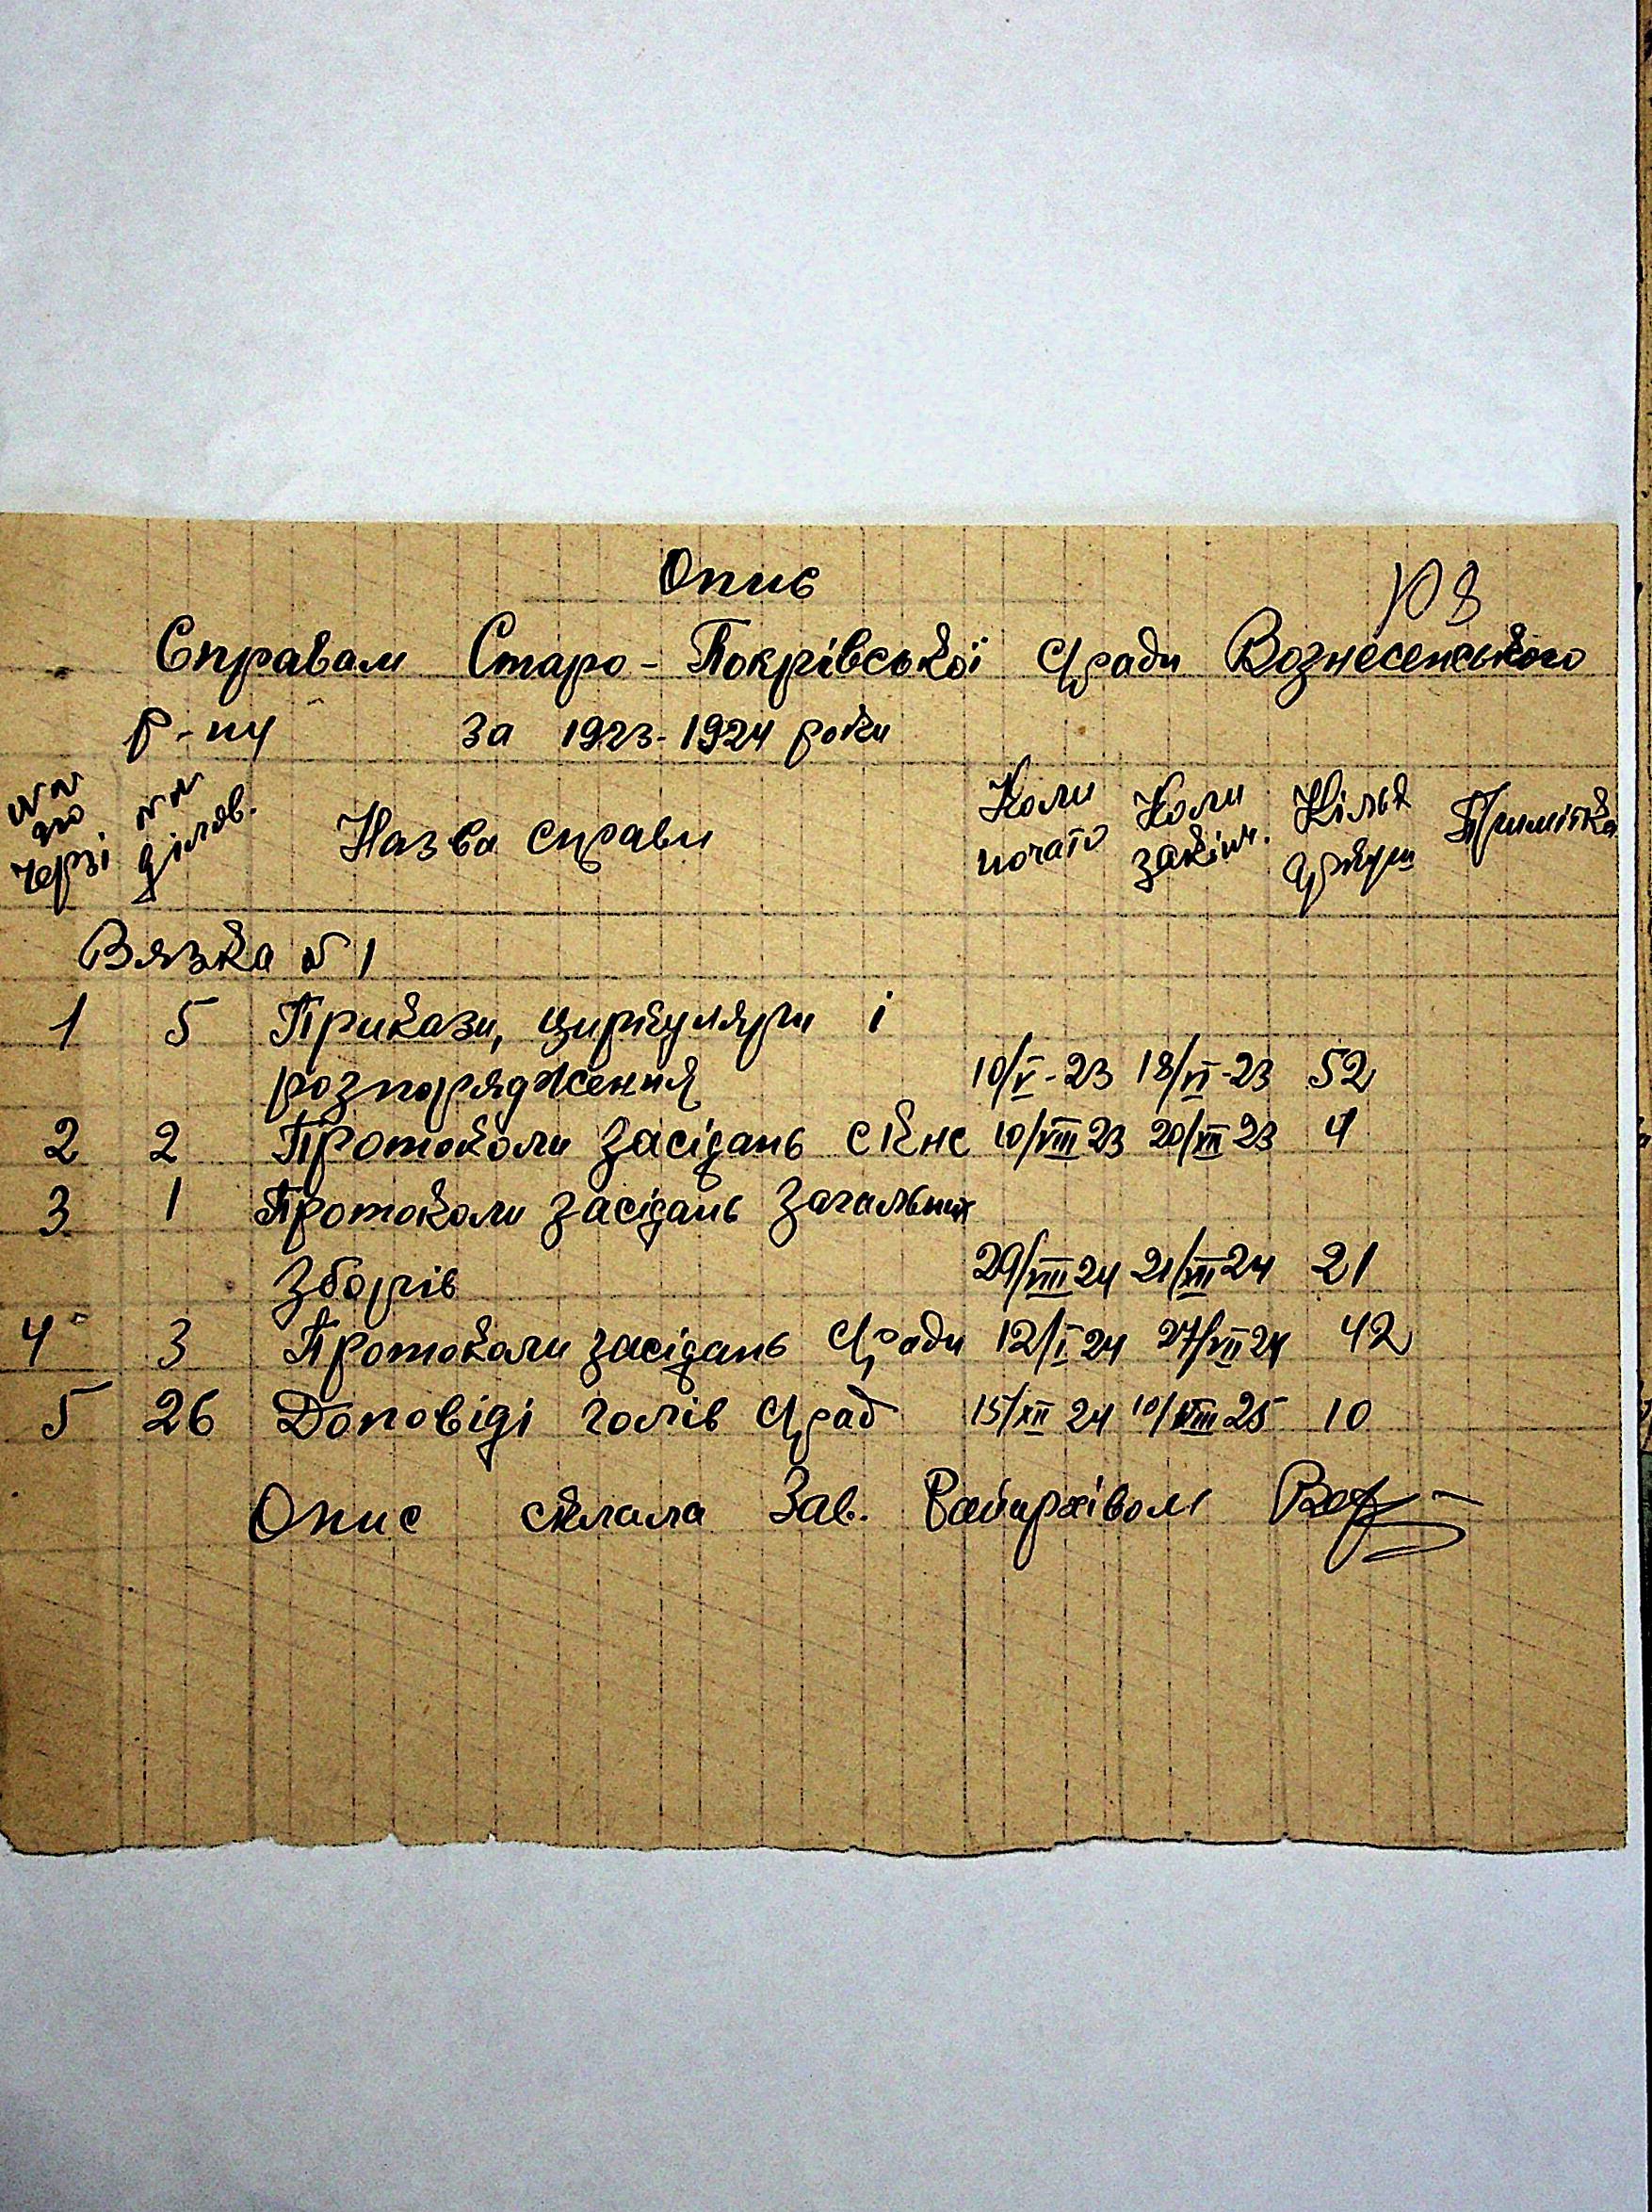 Опис
108
Справам Старо-Покрівської с/ради Вознесенського
р-ну за 1923-1924 роки
№№ по черзі №№ діловв. Назва справи Коли почато Коли закінч. Кільк аркуш Примітка
Вязка №1
1 5 Прикази, циркуляри і
розпорядження 10/V-23 18/VI-23 52
2 2 Протоколи засідань СКНС 10/VIII 23 20/XII 23 4
3 1 Протоколи засідань Загальних
Зборів 29/VIII 24 21/XII 24 21
4 3 Протоколи засідань С/ради 12/I 24 27/VII 24 42
5 26 Доповіді голів С/рад 15/XII 24 10/VIII 25 10
Опис склала Зав. Райархівом